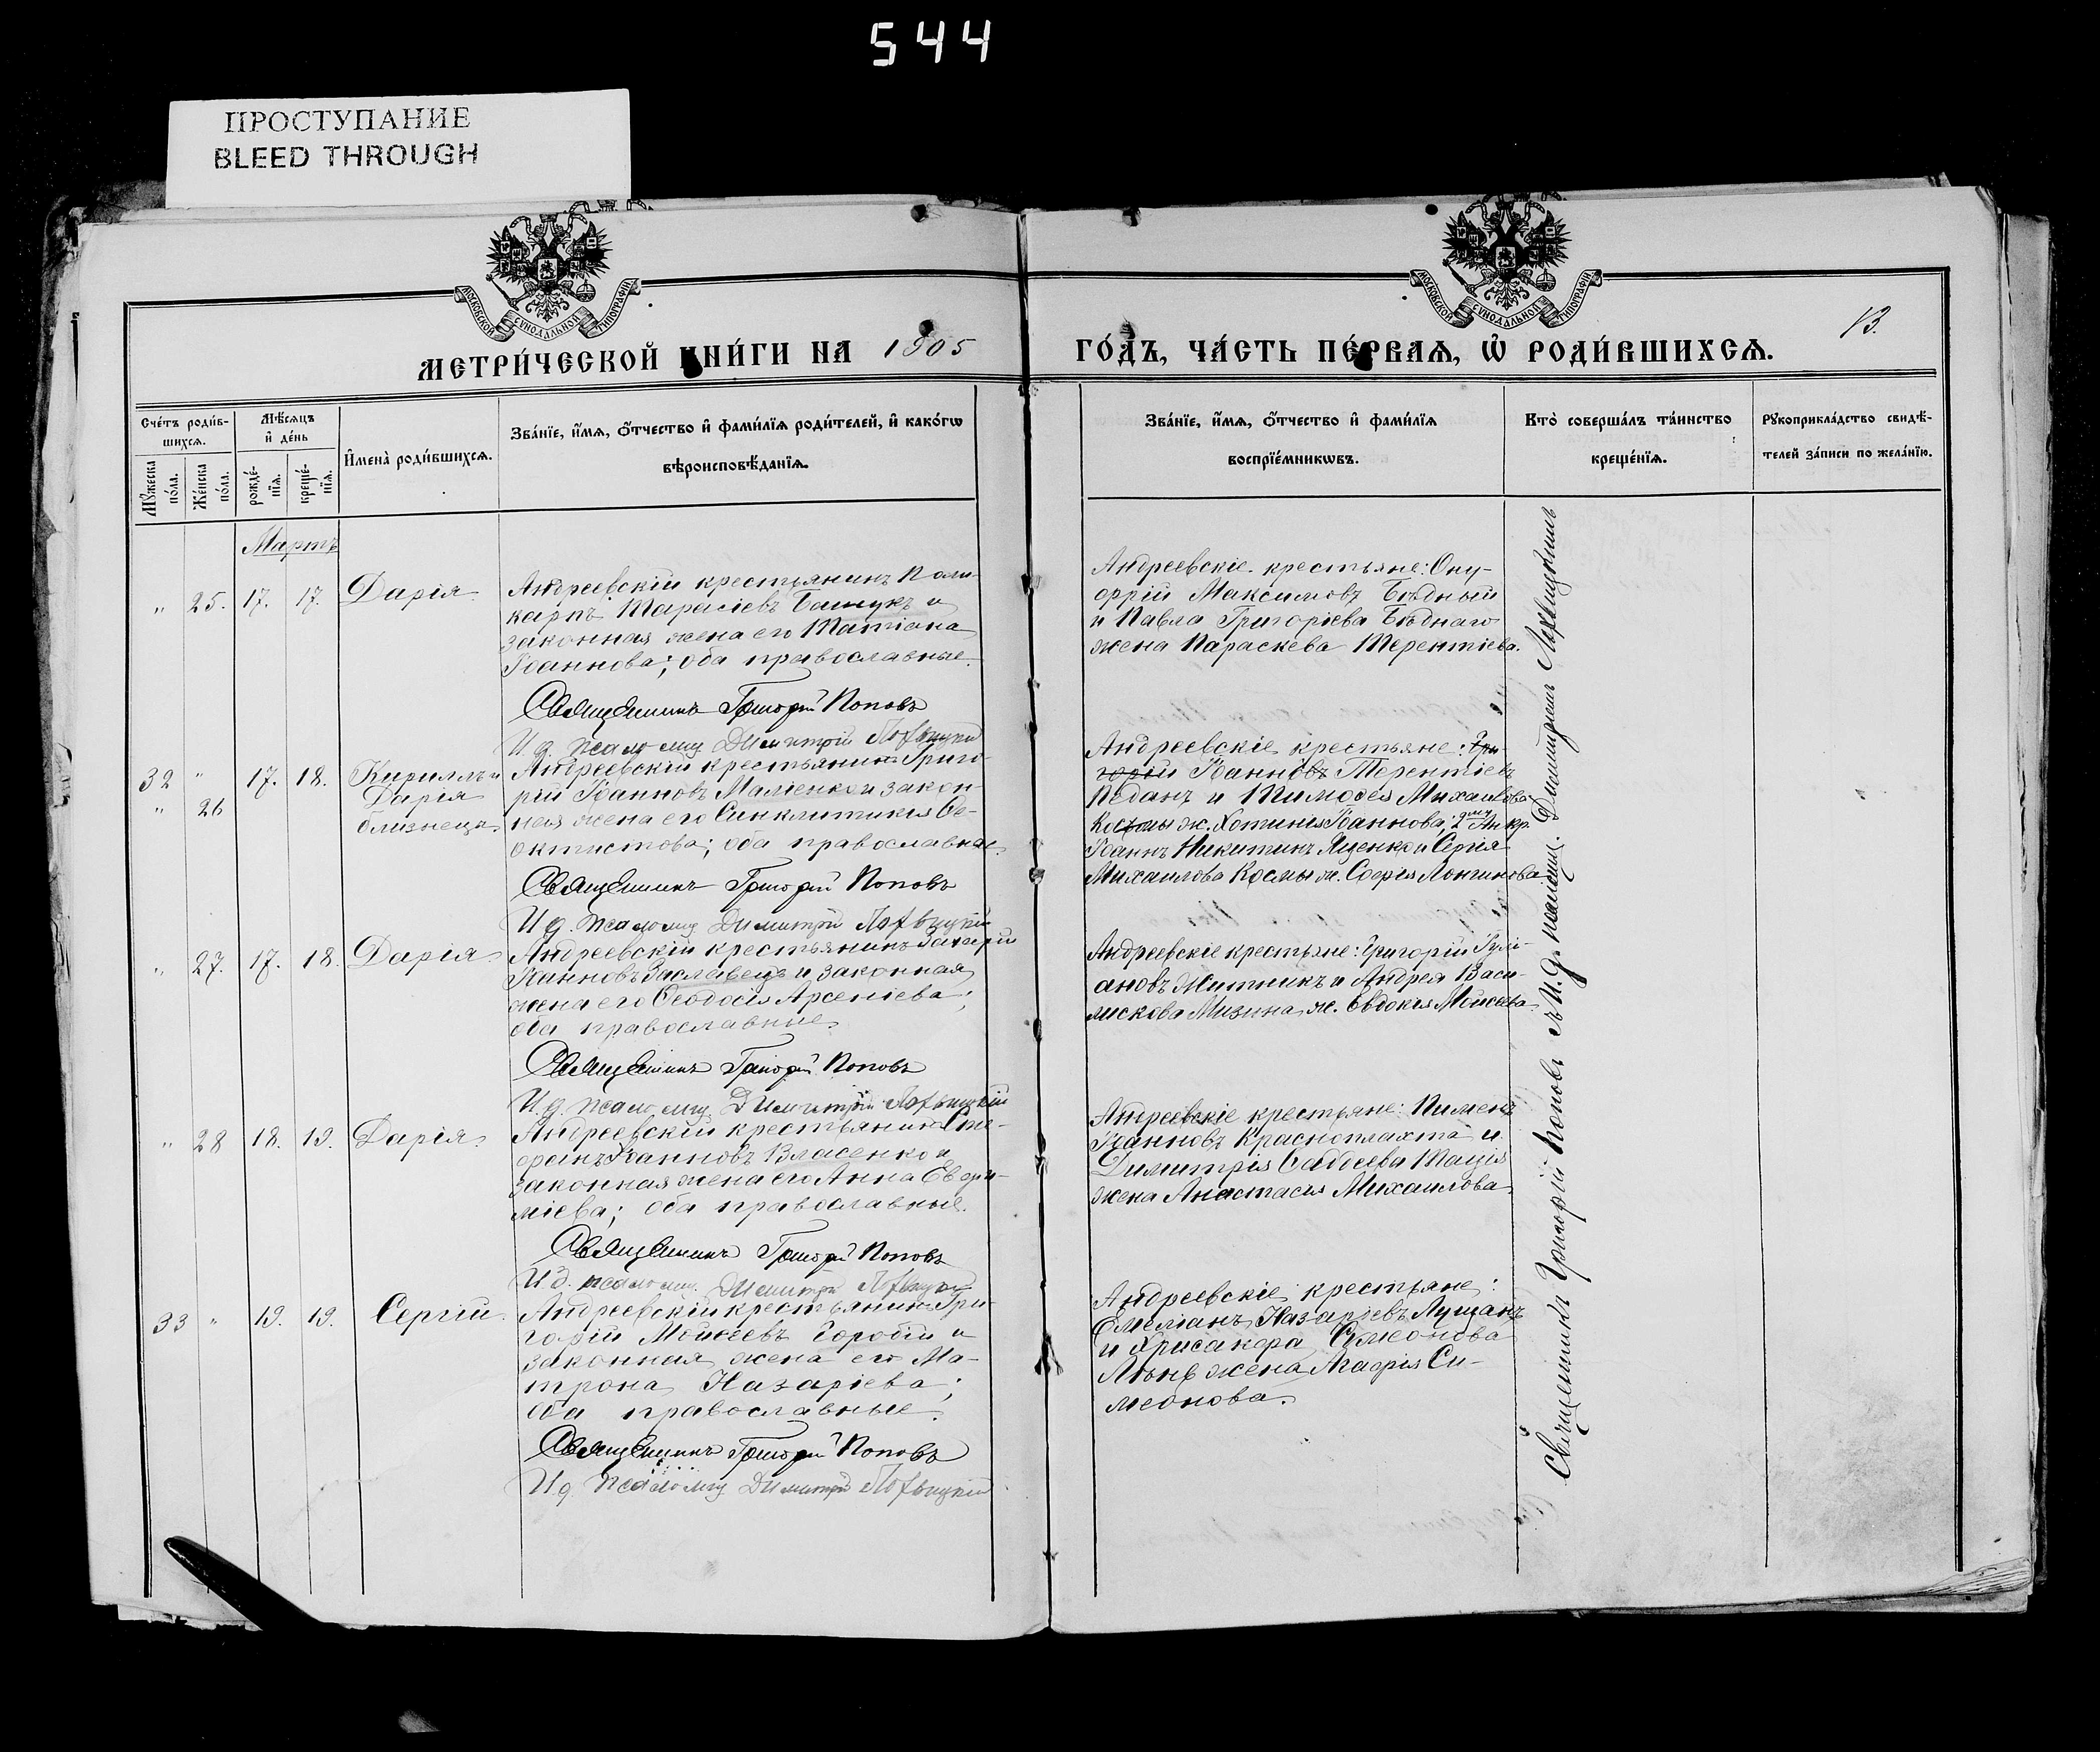 544
ПРОСТУПАНИЕ
BLEED THROUGH
МОСКОВСКОЙ СѴНОДАЛЬНОЙ ТИПОГРАФІИ
МОСКОВСКОЙ СѴНОДАЛЬНОЙ ТИПОГРАФІИ
13.
МЕТРИ́ЧЕСКОЙ КНИ́ГИ НА 1905
ГО́ДЪ, ЧА́СТЬ ПЕ́РВАѦ, Ѽ РОДИ́ВШИХСѦ.
Сче́тъ роди́в-
шихсѧ.
Мѣ́сѧцъ
и҆ де́нь
Мꙋ́жеска
по́ла.
Же́нска
по́ла.
рожде́-
нїѧ.
креще́-
нїѧ.
И҆мена̀ роди́вшихсѧ.
Зва́нїе, и҆́мѧ, ѻ҆́тчество и҆ фами́лїѧ роди́телей, и҆ како́гѡ
вѣроисповѣ́данїѧ.
Зва́нїе, и҆́мѧ, ѻ҆́тчество и҆ фами́лїѧ
воспрїе́мникѡвъ.
Кто̀ соверша́лъ та́инство
креще́нїѧ.
Рꙋкоприкла́дство свидѣ́-
телей за́писи по жела́нїю.
Мартъ
" 25. 17. 17. Дарія
Андреевскій крестьянинъ Поли-
карпъ Тарасіевъ Башукъ и
законная жена его Татіана
Іоаннова; оба православные.
Священникъ Григорій Поповъ
И д. псаломщ Димитрій Лохвицкій
Андреевскіе крестьяне: Ону-
фрій Максимовъ Бѣдный
и Павла Григоріева Бѣднаго
жена Параскева Терентіева.
32 " 17. 18. Кириллъ и
" 26 Дарія
близнецы
Андреевскій крестьянинъ Григо-
рій Іоанновъ Маліенко и закон-
ная жена его Синклитикія Ѳе-
октистова; оба православные.
Священникъ Григорій Поповъ
И д. псаломщ Димитрій Лохвицкій
Андреевскіе крестьяне: Гри-
горій Іоанновъ Терентіевъ
Педанъ и Тимоѳея Михаилова
Косьмы ж. Хотинія Іоаннова; Ан кр.
Іоаннъ Никитинъ Яценко и Сергія
Михаилова Космы ж. Софія Лонгинова
" 27. 17. 18. Дарія.
Андреевскій крестьянинъ Захарій
Іоанновъ Заславецъ и законная
жена его Ѳеодосія Арсеніева;
оба православные.
Священникъ Григорій Поповъ
И д. псаломщ Димитрій Лохвицкій
Андреевскіе крестьяне: Григорій Гулі-
ановъ Житникъ и Андрея Васи-
лискова Мизина ж. Евдокія Моисеева.
" 28 18. 19. Дарія.
Андреевскій крестьянинъ Сте-
фанъ Іоанновъ Власенко и
законная жена его Анна Евфи-
міева; оба православные.
Священникъ Григорій Поповъ
И д. псаломщ. Димитрій Лохвицкій
Андреевскіе крестьяне: Пименъ
Іоанновъ Красноплахта и
Димитрія Ѳаддеева Тація
жена Анастасія Михаилова.
33 " 19. 19. Сергій.
Андреевскій крестьянинъ Гри-
горій Моисеевъ Горобій и
законная жена его Ма-
трона Назаріева;
оба православные.
Священникъ Григорій Поповъ
И д. псаломщ Димитрій Лохвицкій
Андреевскіе крестьяне:
Емеліанъ Назаріевъ Лущанъ
и Хрисанфа Симеонова
жена Агафія Си-
меонова.
Священникъ Григорій Поповъ съ И. д. псаломщ. Димитріемъ Лохвицкимъ